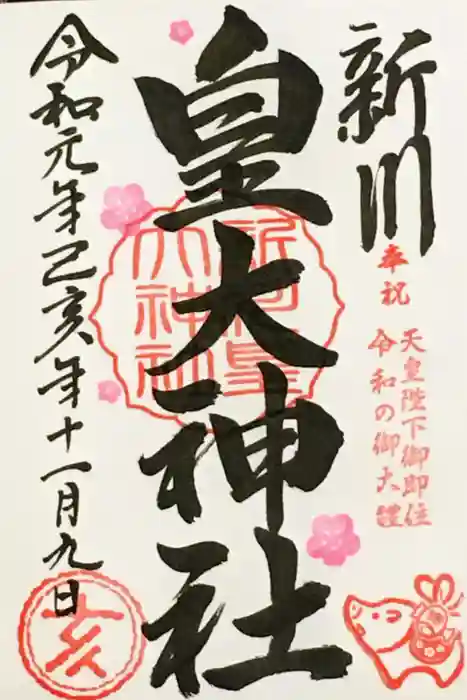 新川
奉祝
天皇陛下御即位
令和の御大禮
皇大神社
新川皇大神社
令和元年己亥年十一月九日
亥